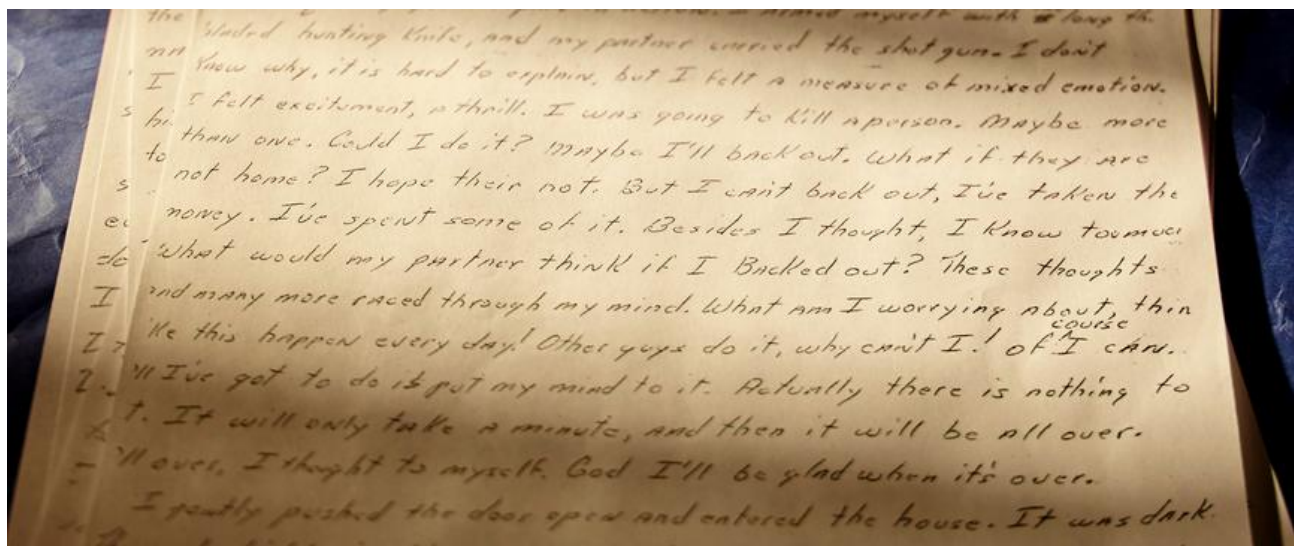 the
myself with a long th
bladed hunting knife, and my partner carried the shotgun. I don't
know why, it is hard to explain, but I felt a measure of mixed emotion.
I felt excitement, a thrill. I was going to kill a person. Maybe more
than one. Could I do it? Maybe I'll back out. What if they are
not home? I hope their not. But I can't back out, I've taken the
money. I've spent some of it. Besides I thought, I know toomuch
What would my partner think if I Backed out? These thoughts
and many more raced through my mind. What am I worrying about, thin
ike this happen every day! Other guys do it, why can't I! of course I can.
'll I've got to do is put my mind to it. Actually there is nothing to
t. It will only take a minute, and then it will be all over.
'll over, I thought to myself. God I'll be glad when it's over.
I gently pushed the door open and entered the house. It was dark.